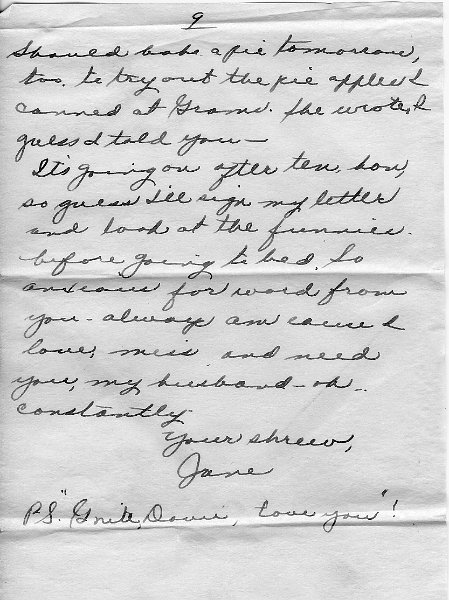 9
Should bake a pie tomorrow,
too, to try out the pie apples I
canned at Grams. She wrote, I
guess I told you—
It's going on after ten, hon,
so guess I'll sign my letter
and look at the funnies
before going to bed. So
anxious for word from
you - always am cause I
love, miss and need
you, my husband - oh -
constantly
Your shrew,
Jane
P.S. "G'nite, Davie, love you"!